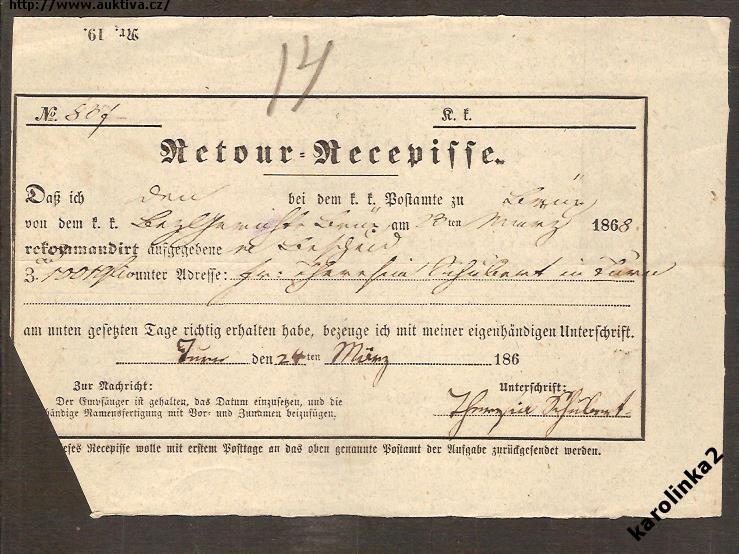 http://www.auktiva.cz/
Nr. 19.
14
№. 807
K. k.
Retour-Recepisse.
Daß ich den bei dem k. k. Postamte zu Brüx
von dem k. k. Bez. Gerichte Brüx am ten März 1868
rekommandirt aufgegebene Bescheid
Z. unter Adresse: Fr. Theresia Schubert in Turn
am unten gesetzten Tage richtig erhalten habe, bezeuge ich mit meiner eigenhändigen Unterschrift.
Turn den 24ten März 186
Zur Nachricht:
Der Empfänger ist gehalten, das Datum einzusetzen, und die
händige Namensfertigung mit Vor- und Zunamen beizufügen.
Unterschrift:
Theresia Schubert
eses Recepisse wolle mit erstem Posttage an das oben genannte Postamt der Aufgabe zurückgesendet werden.
karolinka2